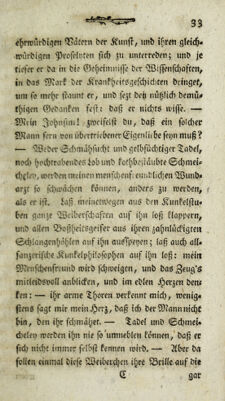 33
ehrwürdigen Vätern der Kunst, und ihren gleich-
würdigen Proselyten sich zu unterreden; und je
tiefer er da in die Geheimnisse der Wissenschaften,
in das Mark der Krankheitsgeschichten dringet,
um so mehr staunt er, und sezt sich den demüthi-
gen Gedanken fest: daß er nichts wisse. —
Mein Johnsin! zweifelst du, daß ein solcher
Mann fern von übertriebener Eigenliebe seyn muß?
— Weder Schmähsucht und gelbsüchtiger Tadel,
noch hochtrabendes Lob und kothbestäubte Schmei-
cheley, werden meinen menschenfreundlichen Wund-
arzt so schwächen können, anders zu werden,
als er ist. Laß meinetwegen aus den Kunkelstu-
ben ganze Weiberschaften auf ihn loß klappern,
und allen Boßheitsgeifer aus ihren zahnlückigten
Schlangenhöhlen auf ihn ausspeyen; laß auch all-
fanzerische Kunkelphilosophen auf ihn loß: mein
Menschenfreund wird schweigen, und das Zeug's
mitleidsvoll anblicken, und im edlen Herzen den-
ken: — ihr arme Thoren verkennt mich, wenig-
stens sagt mir mein Herz, daß ich der Mann nicht
bin, den ihr schmähet. — Tadel und Schmei-
cheley werden ihn nie so umneblen können, daß er
sich nicht immer selbst kennen wird. — Aber da
sollen einmal diese Weiberchen ihre Brille auf die
C
gar